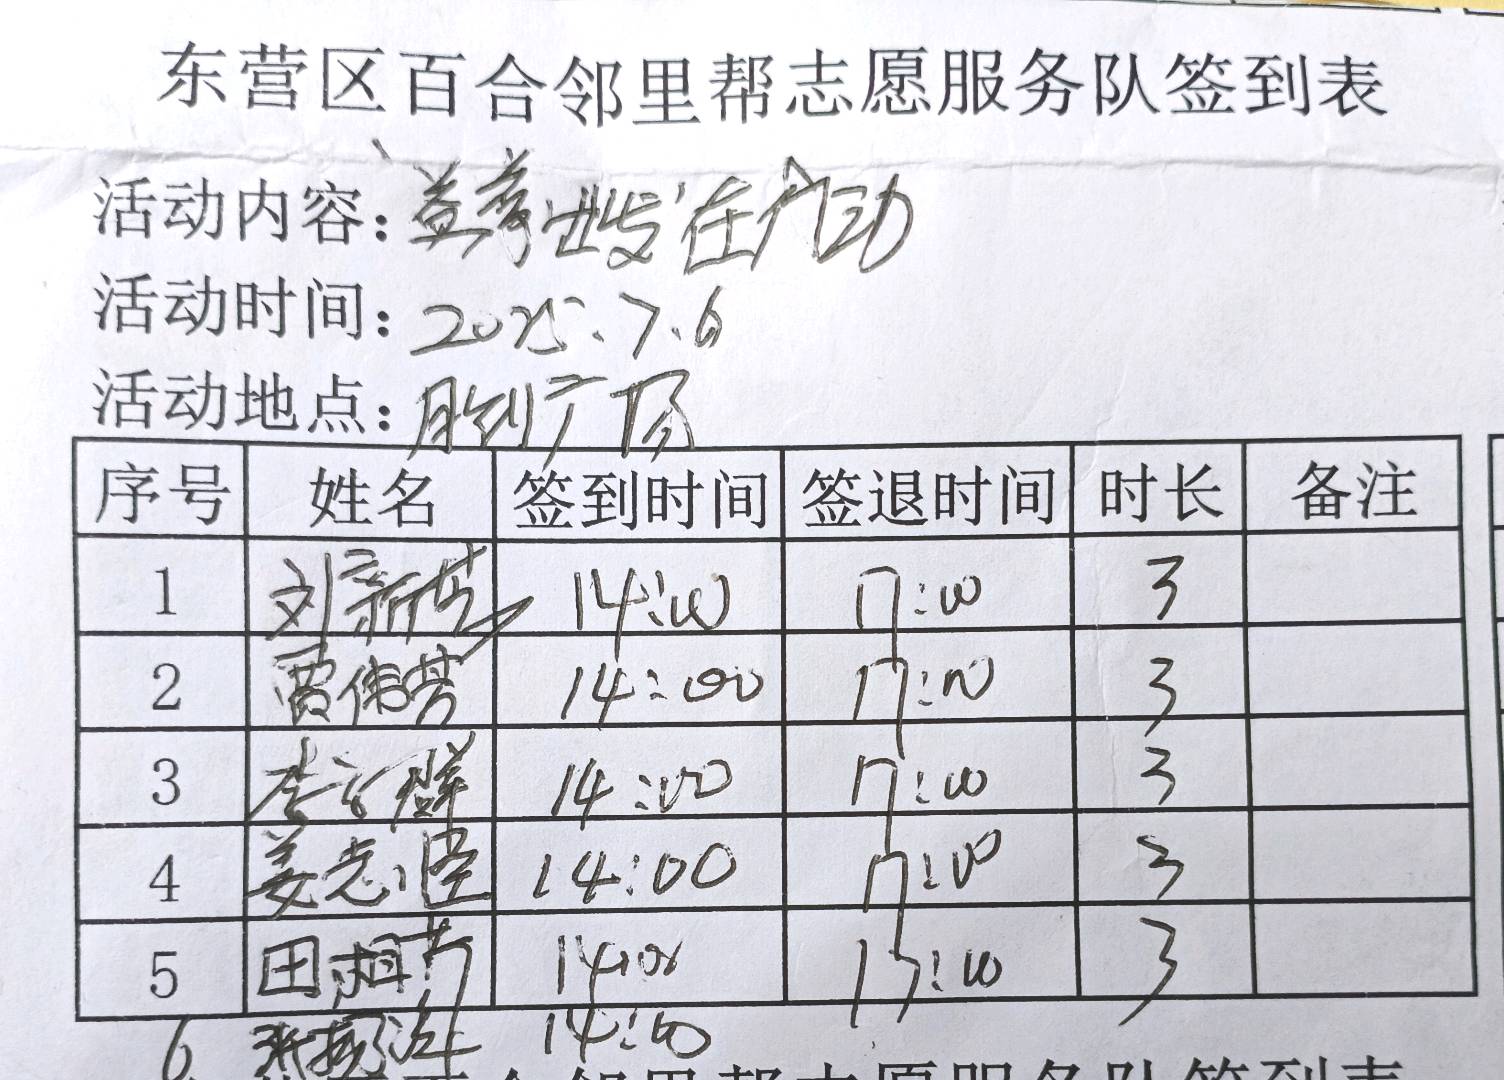 东营区百合邻里帮志愿服务队签到表
活动内容：
活动时间：2025.7.6
活动地点：胜利广场
序号 姓名 签到时间 签退时间 时长 备注
1 刘新芳 14:00 17:00 3
2 贾伟芳 14:00 17:00 3
3 李 群 14:00 17:00 3
4 姜志 14:00 17:00 3
5 田湘 14:00 17:00 3
6 张振 14:00
百合邻里帮志愿服务队签到表